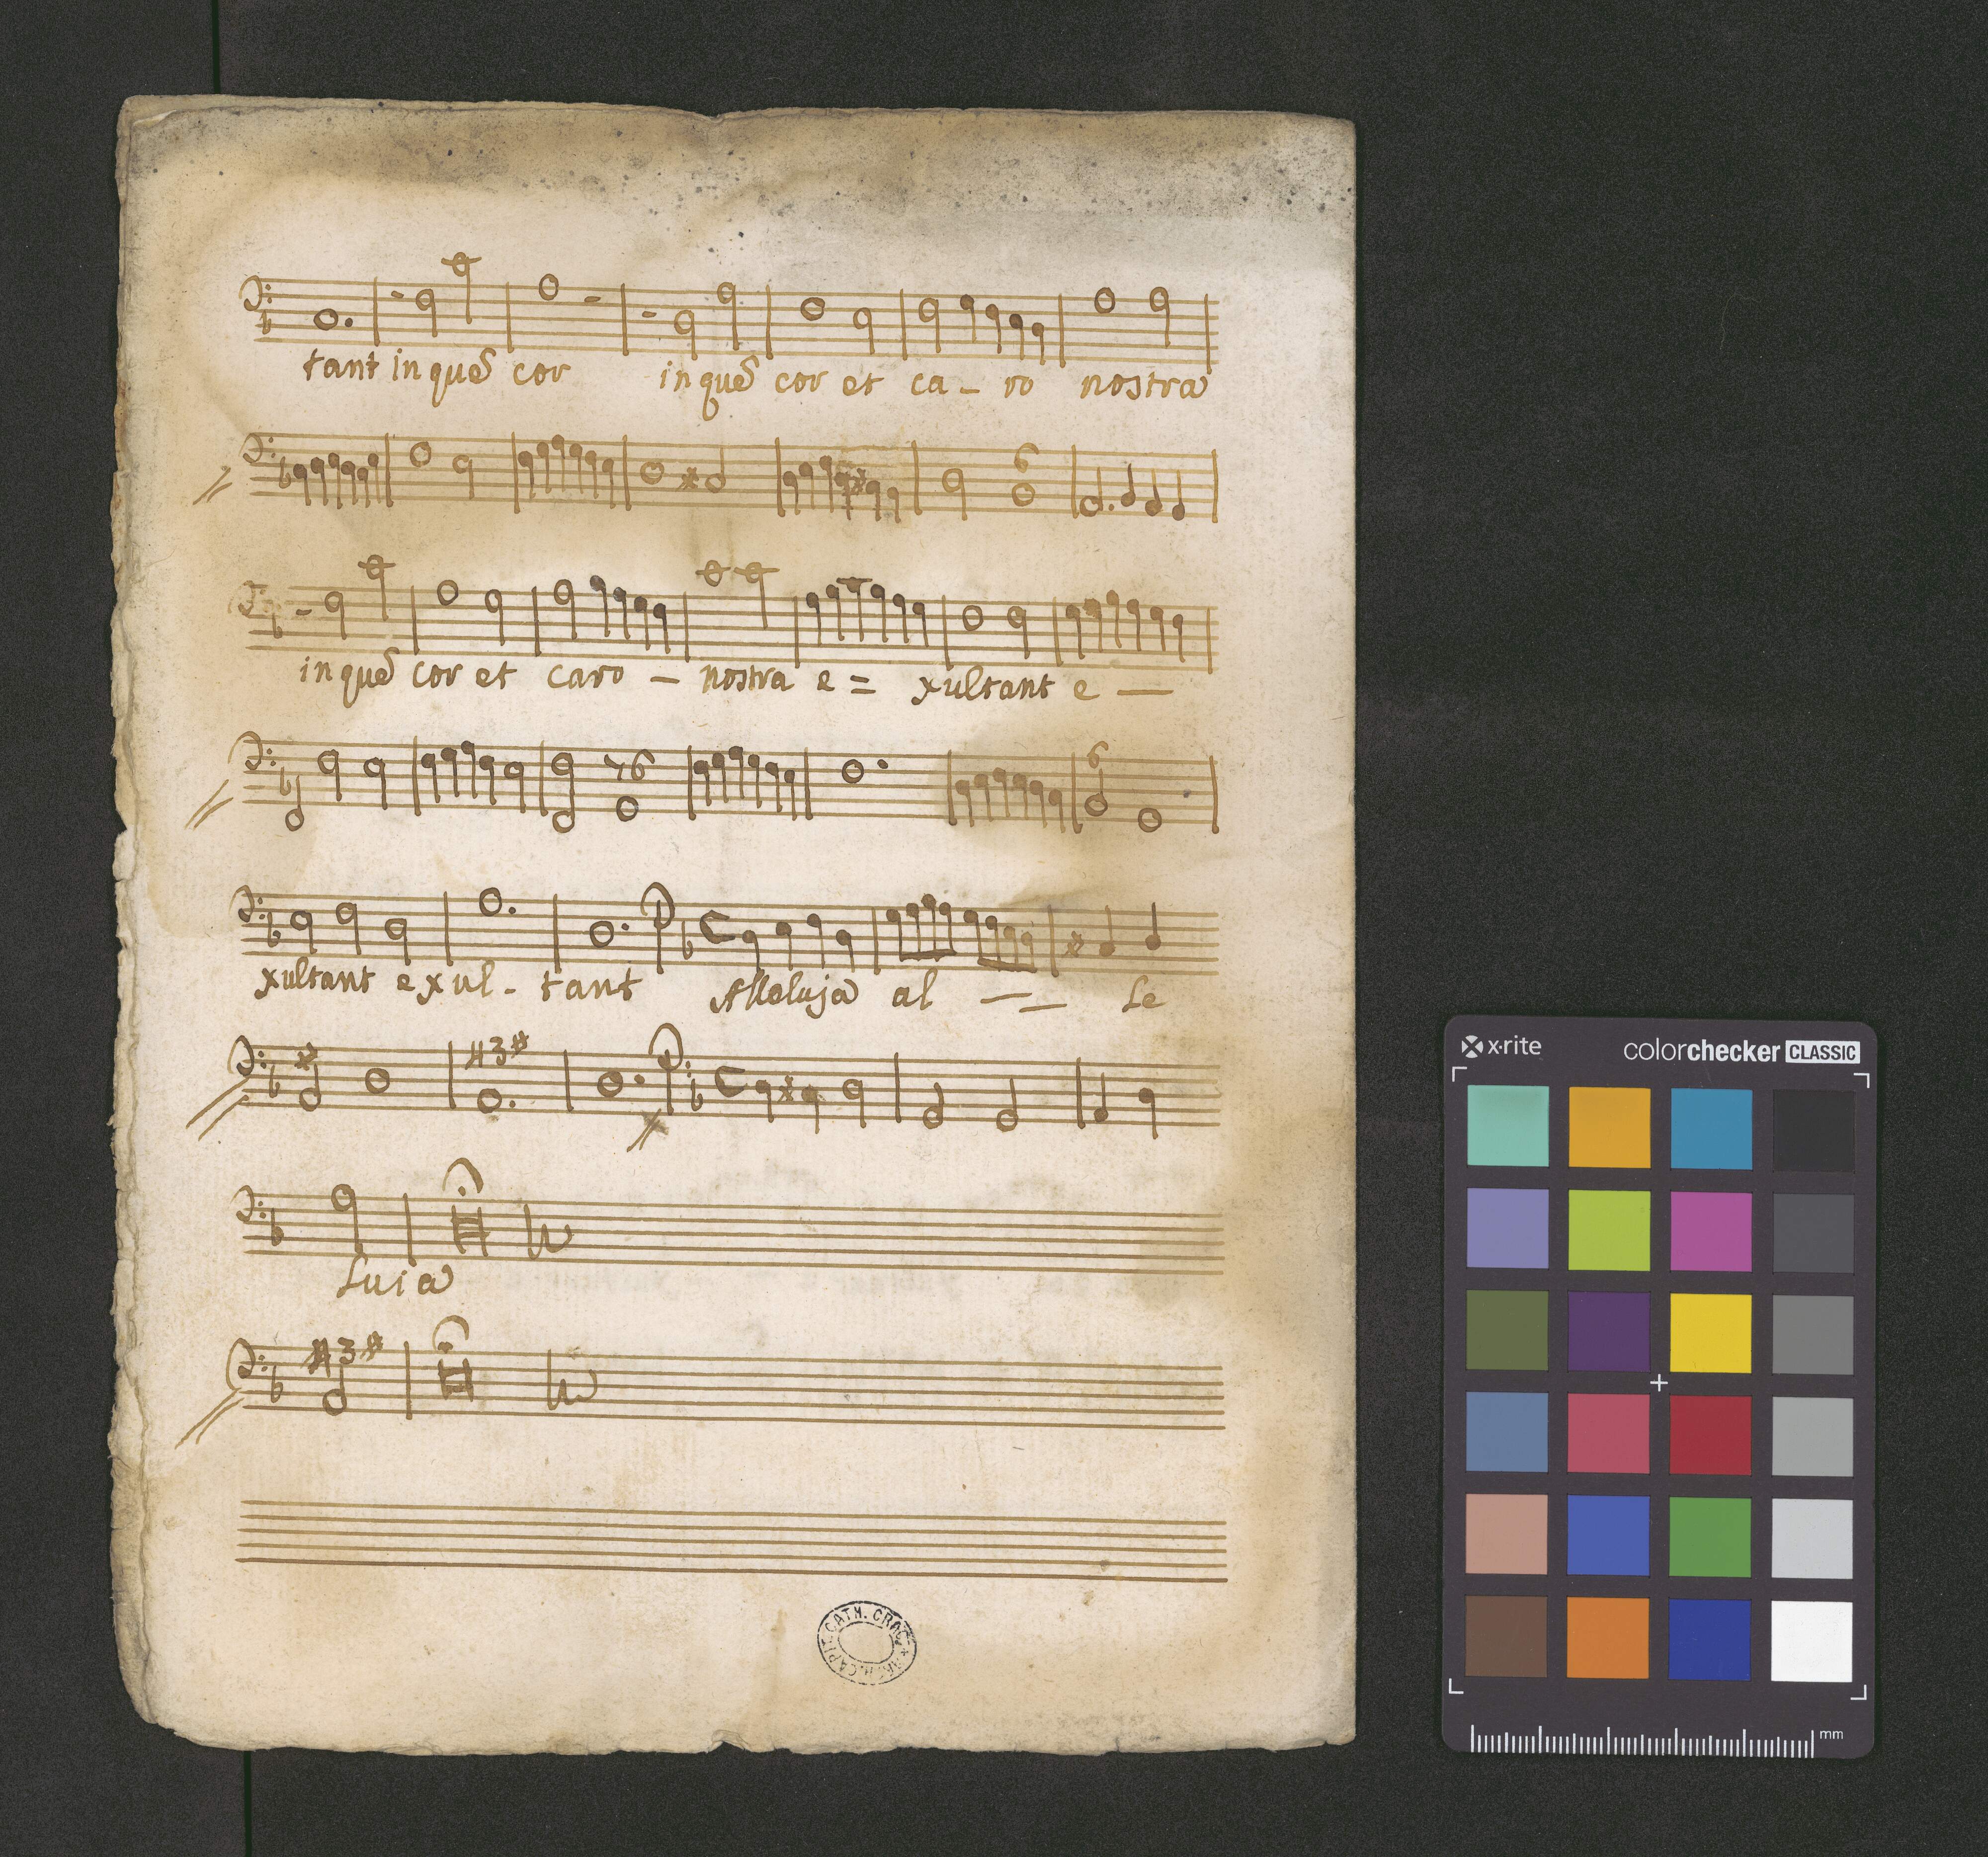 tant in quē cor in quē cor et ca - ro nostra
6
in quē cor et caro - nostra e = xultant e -
76 6
xultant exul - tant Alleluja al - - le
43#
luia
43#
ARCH. CAPIT. CATH. CRAC.
x-rite colorchecker CLASSIC
mm